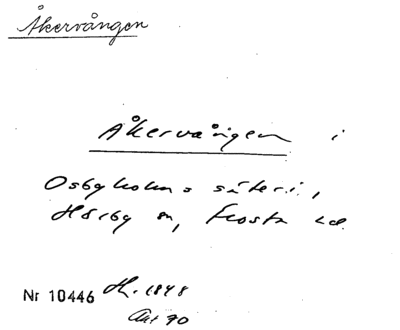 Åkervången
Åkervången i
Osbyholms säteri,
Hörby sn, Frosta hd.
Nr 10446 H. 1848
Akt 90